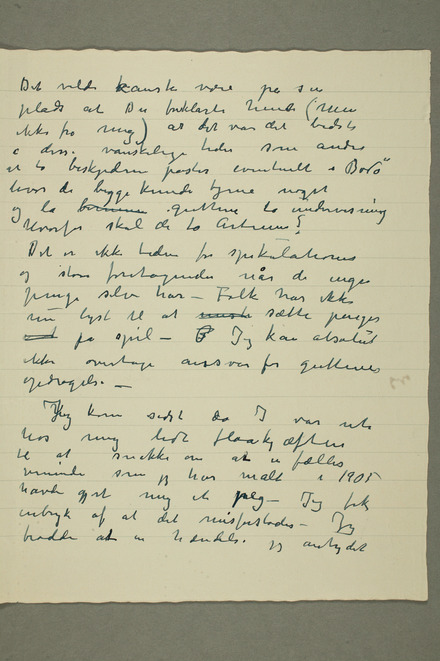 Det vilde kanske være på sin
plads at Du forklarte hende (men
ikke fra mig) at det var det bedste
i disse vanskelige tider som andre
at ta beskjedne poster eventuelt i Bodö
hvor de begge kunde tjene noget
og la guttene ta undervisning
Hvorfor skal de ta Artium?
Det er ikke tiden for spekulationer
og store foretagender når de ingen
penge selv har – Folk har ikke
nu lyst til at sætte penger
på spil – Jeg kan absolut
ikke overtage ansvar for guttenes
opdragelse –
Jeg kom sidst da I var ute
hos mig lidt
til at snakke om at en fælles
veninde som jeg har malt i 1905
havde gjort mig et – Jeg fik
indtryk af at det misforstodes – Jeg
trodde at en hændelse jeg antydet